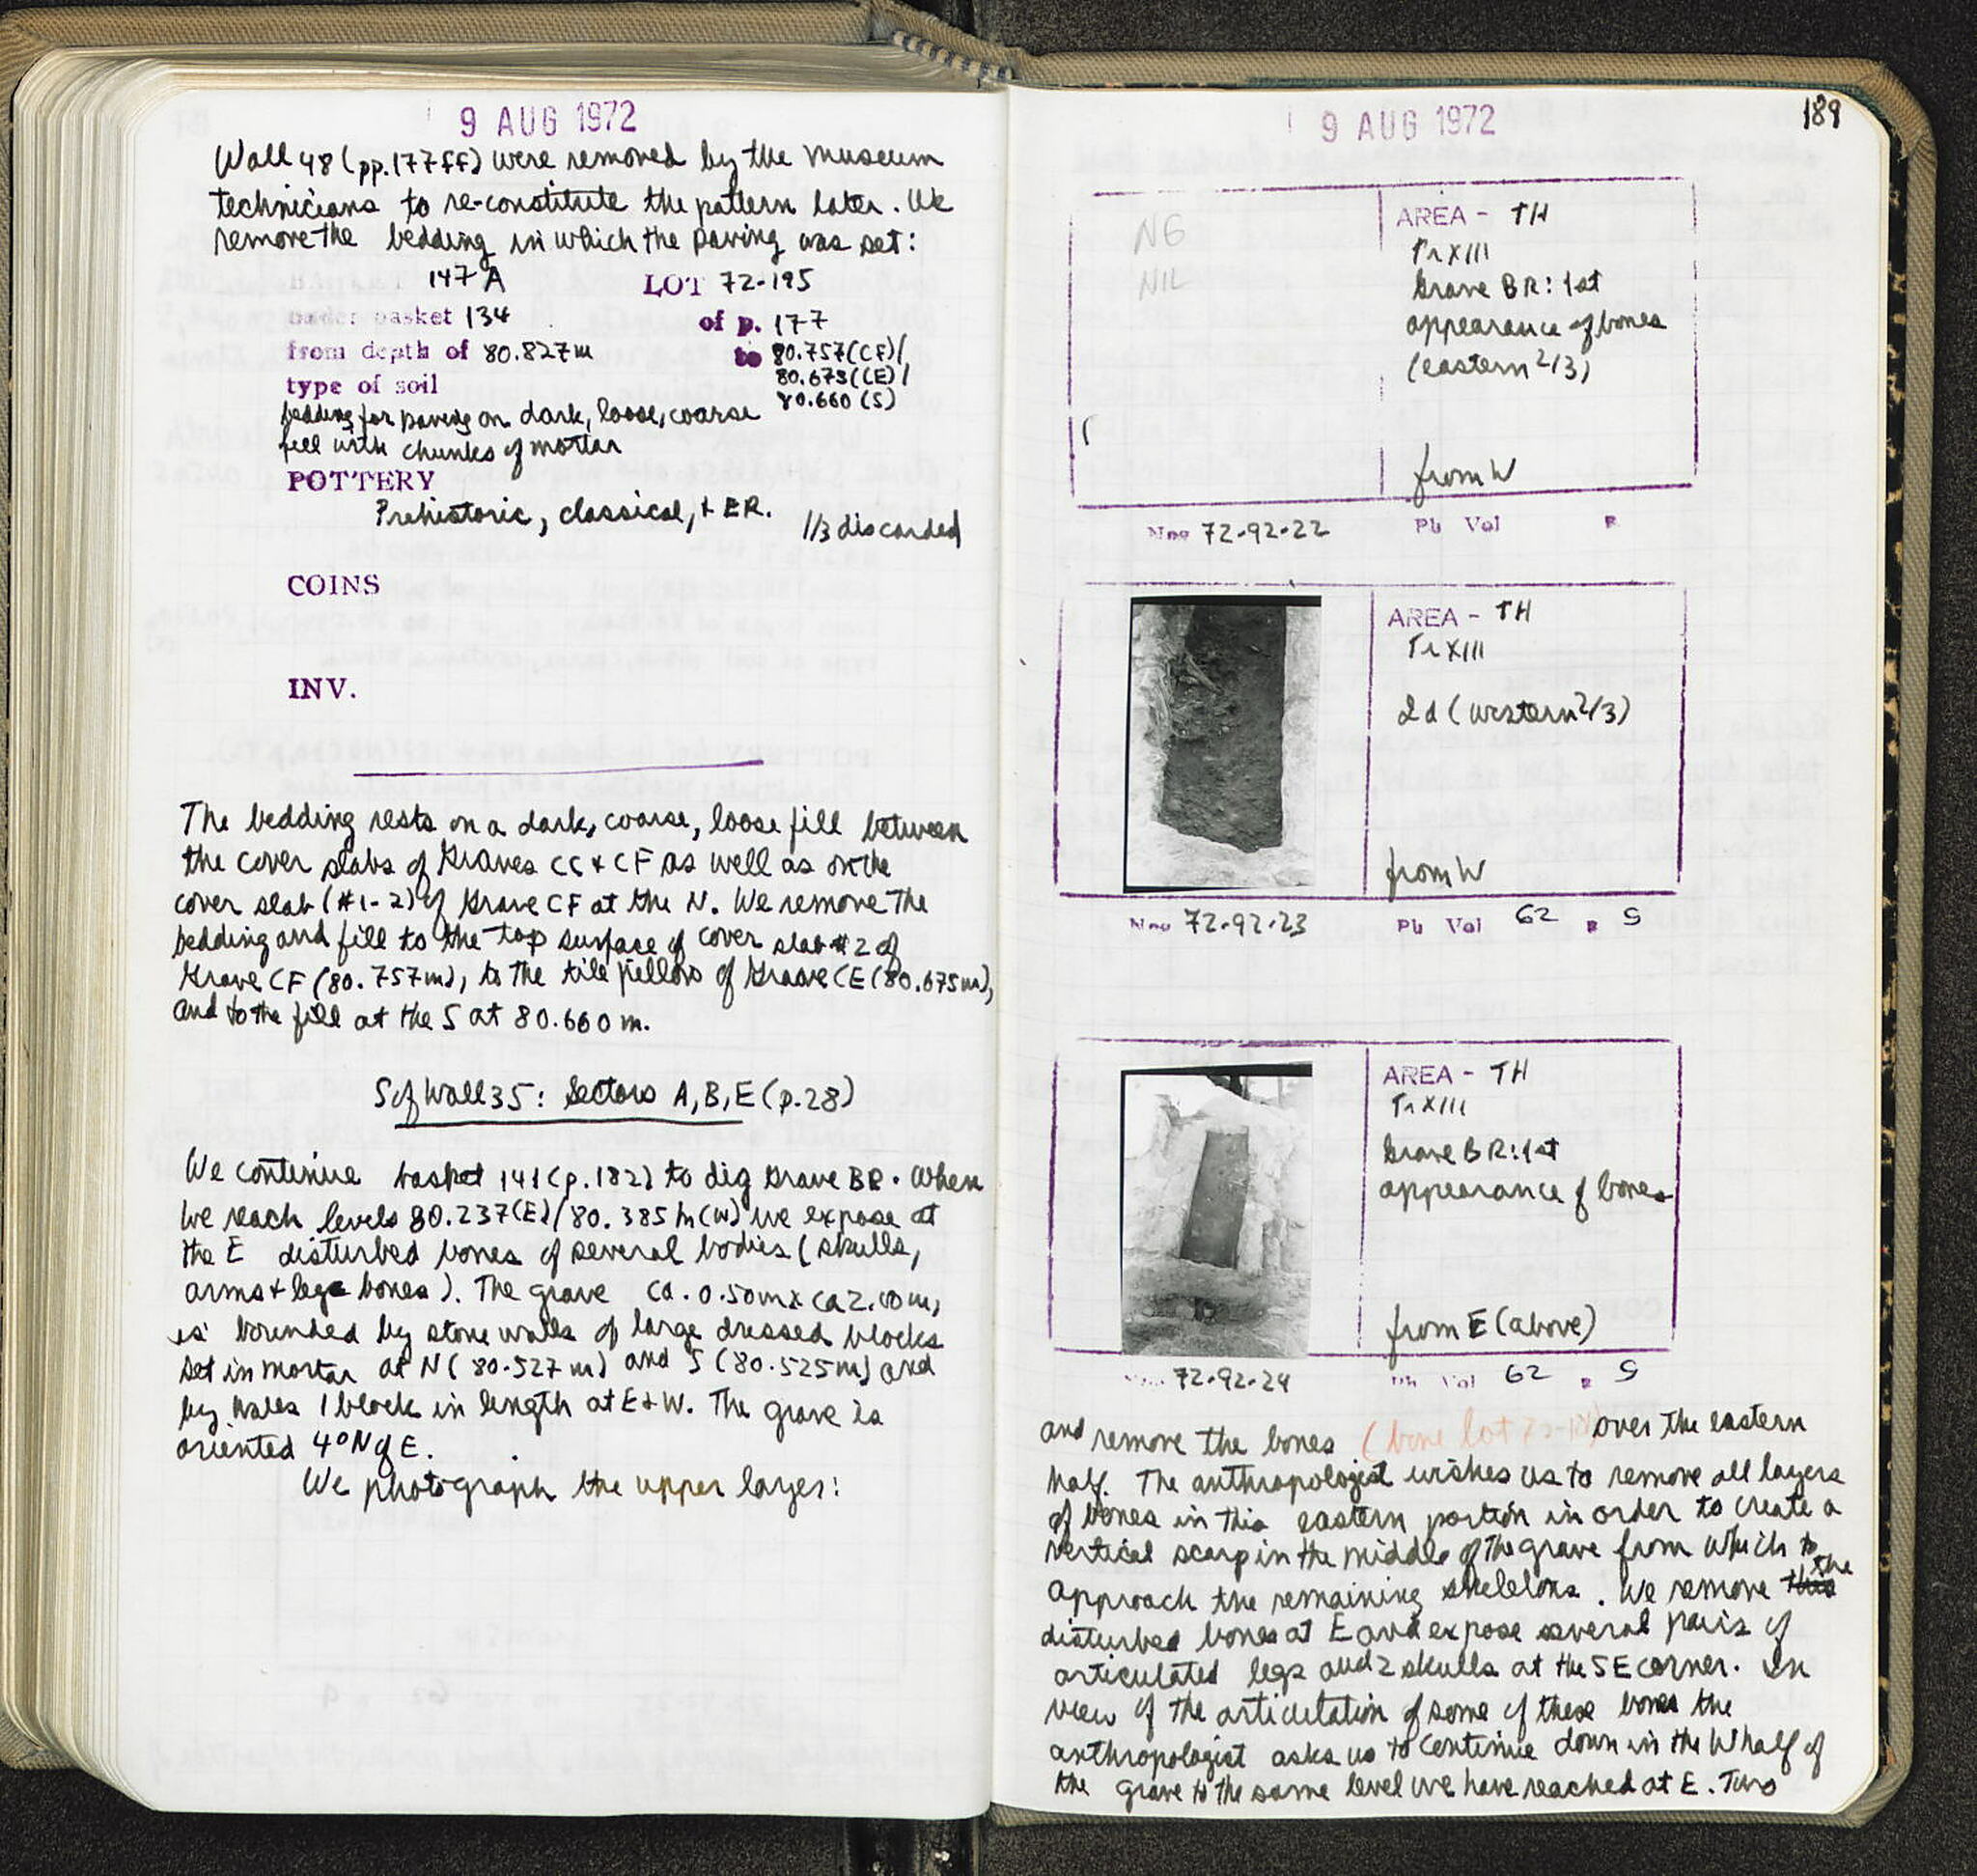 9 AUG 1972
Wall 48 (pp. 177ff) were removed by the museum
technicians to re-constitute the pattern later. We
remove the bedding in which the paving was set:
147 A LOT 72-195
under basket 134 of p. 177
from depth of 80.827m to 80.757(CF)/
80.673(CE)/
type of soil 80.660 (S)
bedding for paving on dark, loose, coarse
fill with chunks of mortar
POTTERY
Prehistoric, classical, + ER. 1/3 discarded
COINS
INV.
The bedding rests on a dark, coarse, loose fill between
the cover slabs of Graves CC & CF as well as on the
cover slab (#1-2) of Grave CF at the N. We remove the
bedding and fill to the top surface of cover slab #2 of
Grave CF (80.757m), to the tile pillow of Grave CE (80.675m),
and to the fill at the S at 80.660 m.
S of Wall 35: Sectors A, B, E (p. 28)
We continue basket 141 (p. 182) to dig Grave BR. When
we reach levels 80.237(E)/80.385m(W) we expose at
the E disturbed bones of several bodies (skulls,
arms + legs bones). The grave ca. 0.50m x ca 2.00m,
is bounded by stone walls of large dressed blocks
set in mortar at N (80.527 m) and S (80.525m) and
by walls 1 block in length at E + W. The grave is
oriented 4° N of E.
We photograph the upper layer:
9 AUG 1972
189
NG
NIL
AREA - TH
Tr XIII
Grave BR: 1st
appearance of bones
(eastern 2/3)
from W
Neg 72-92-22 Ph Vol P
AREA - TH
Tr XIII
2d (western 2/3)
from W
Neg 72-92-23 Ph Vol 62 P 9
AREA - TH
Tr XIII
Grave BR: 1st
appearance of bones
from E (above)
72-92-24 Ph Vol 62 P 9
and remove the bones (bone lot over the eastern
half. The anthropologist wishes us to remove all layers
of bones in this eastern portion in order to create a
vertical scarp in the middle of the grave from which to
approach the remaining skeletons. We remove this the
disturbed bones at E and expose several pairs of
articulated legs and 2 skulls at the SE corner. In
view of the articulation of some of these bones the
anthropologist asks us to continue down in the W half of
the grave to the same level we have reached at E. Two